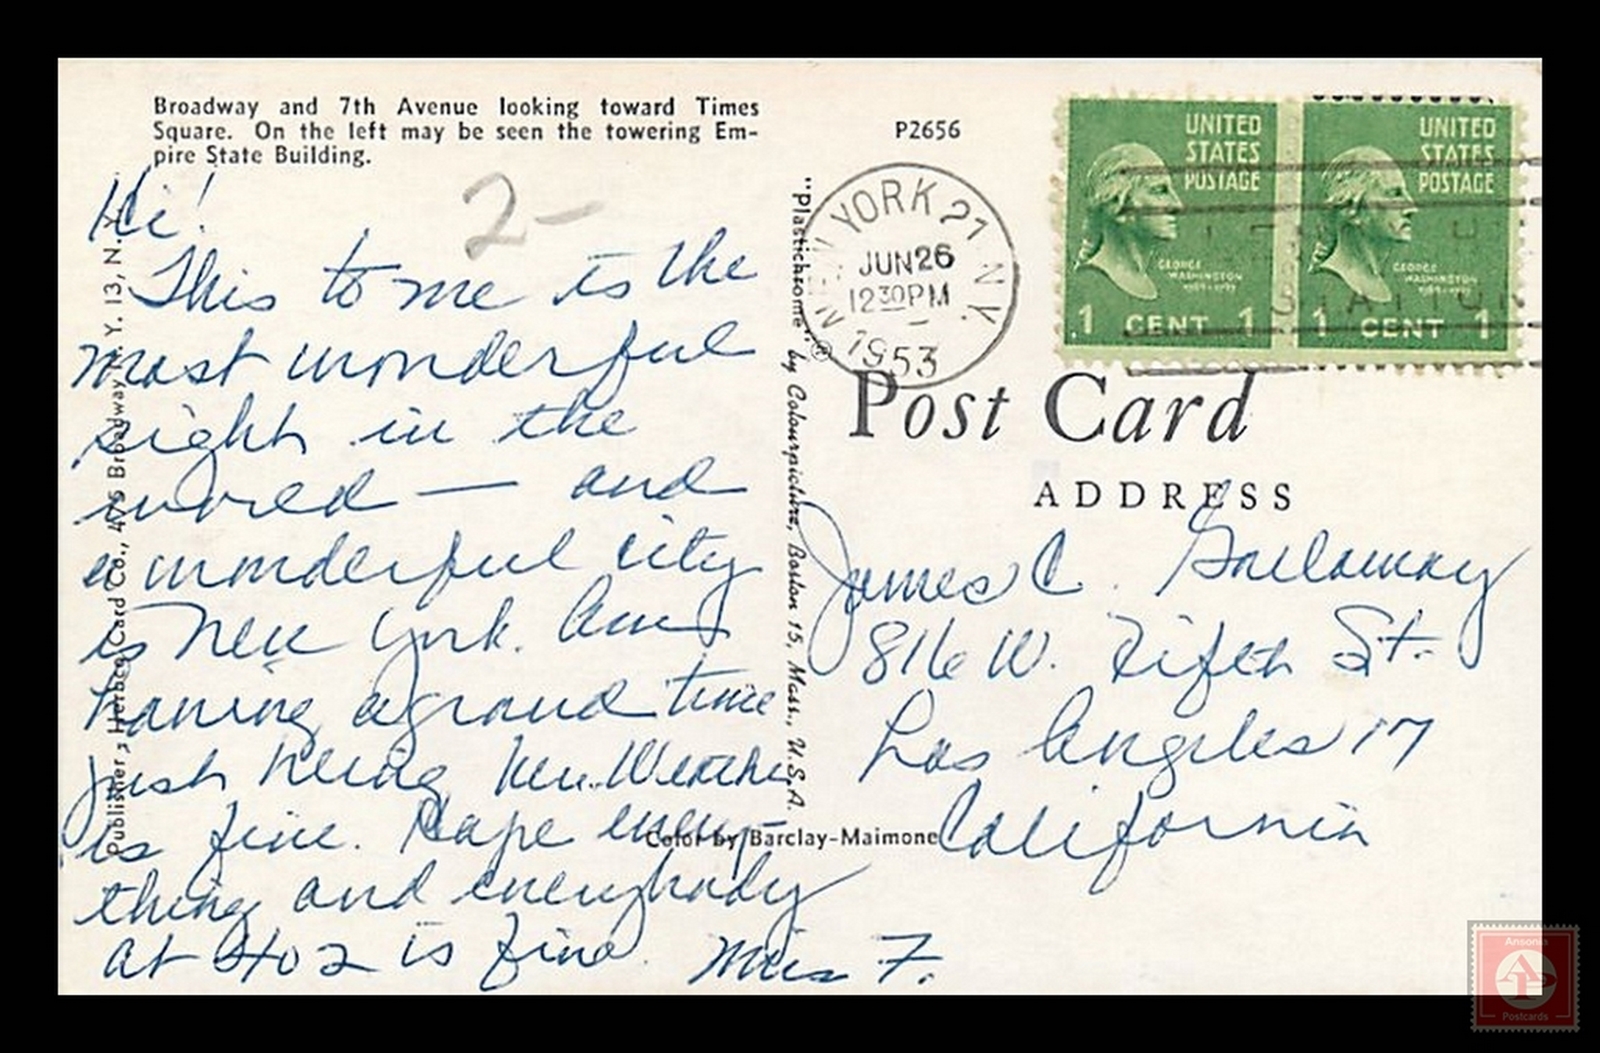 Broadway and 7th Avenue looking toward Times
Square. On the left may be seen the towering Em-
pire State Building.
P2656
2-
Hi!
This to me is the
most wonderful
sight in the
world — and
a wonderful city
is New York. Am
having a grand time
just being here. Weather
is fine. Hope every-
thing and everybody
at 402 is fine. Miss F.
Publisher: Herberg Card Co., Broadway N. Y. 13, N. Y.
"Plastichrome" ® by Colourpicture, Boston 15, Mass., U.S.A.
Color by Barclay-Maimone
NEW YORK 21 N.Y.
JUN 26
12 30 PM
1953
UNITED
STATES
POSTAGE
GEORGE
WASHINGTON
1789-1797
1 CENT 1
UNITED
STATES
POSTAGE
GEORGE
WASHINGTON
1789-1797
1 CENT 1
Post Card
ADDRESS
James C. Gallaway
816 W. Fifth St.
Los Angeles 17
California
Ansonia
AP
Postcards